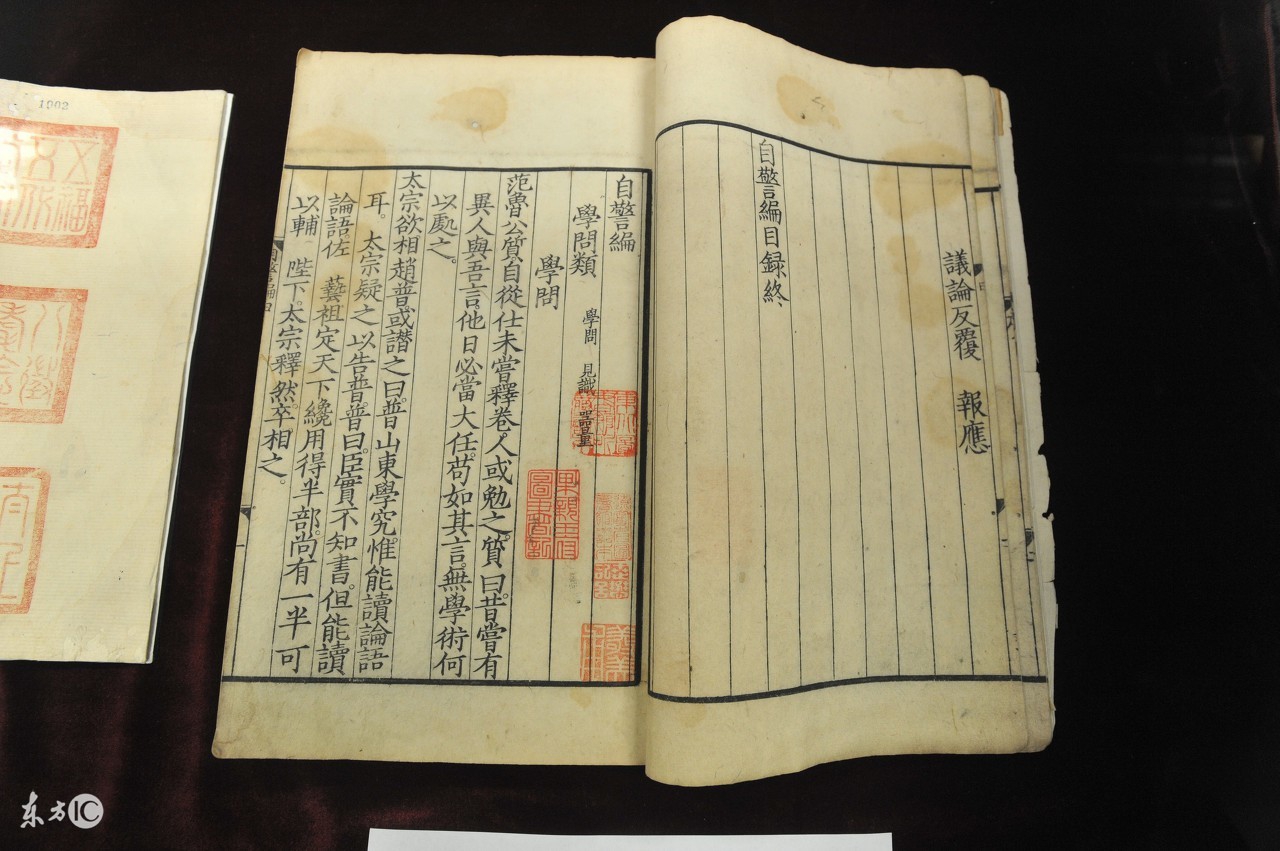 議論反覆 報應
自警編目録終
自警編
學問類 學問 見識 器量
學問
范魯公質自從仕未嘗釋卷人或勉之質曰昔嘗有
異人與吾言他日必當大任苟如其言無學術何
以處之。
太宗欲相趙普或譖之曰普山東學究惟能讀論語
耳。太宗疑之以告普普曰臣實不知書但能讀
論語佐 藝祖定天下纔用得半部尚有一半可
以輔 陛下太宗釋然卒相之。
1902
五福
東方IC